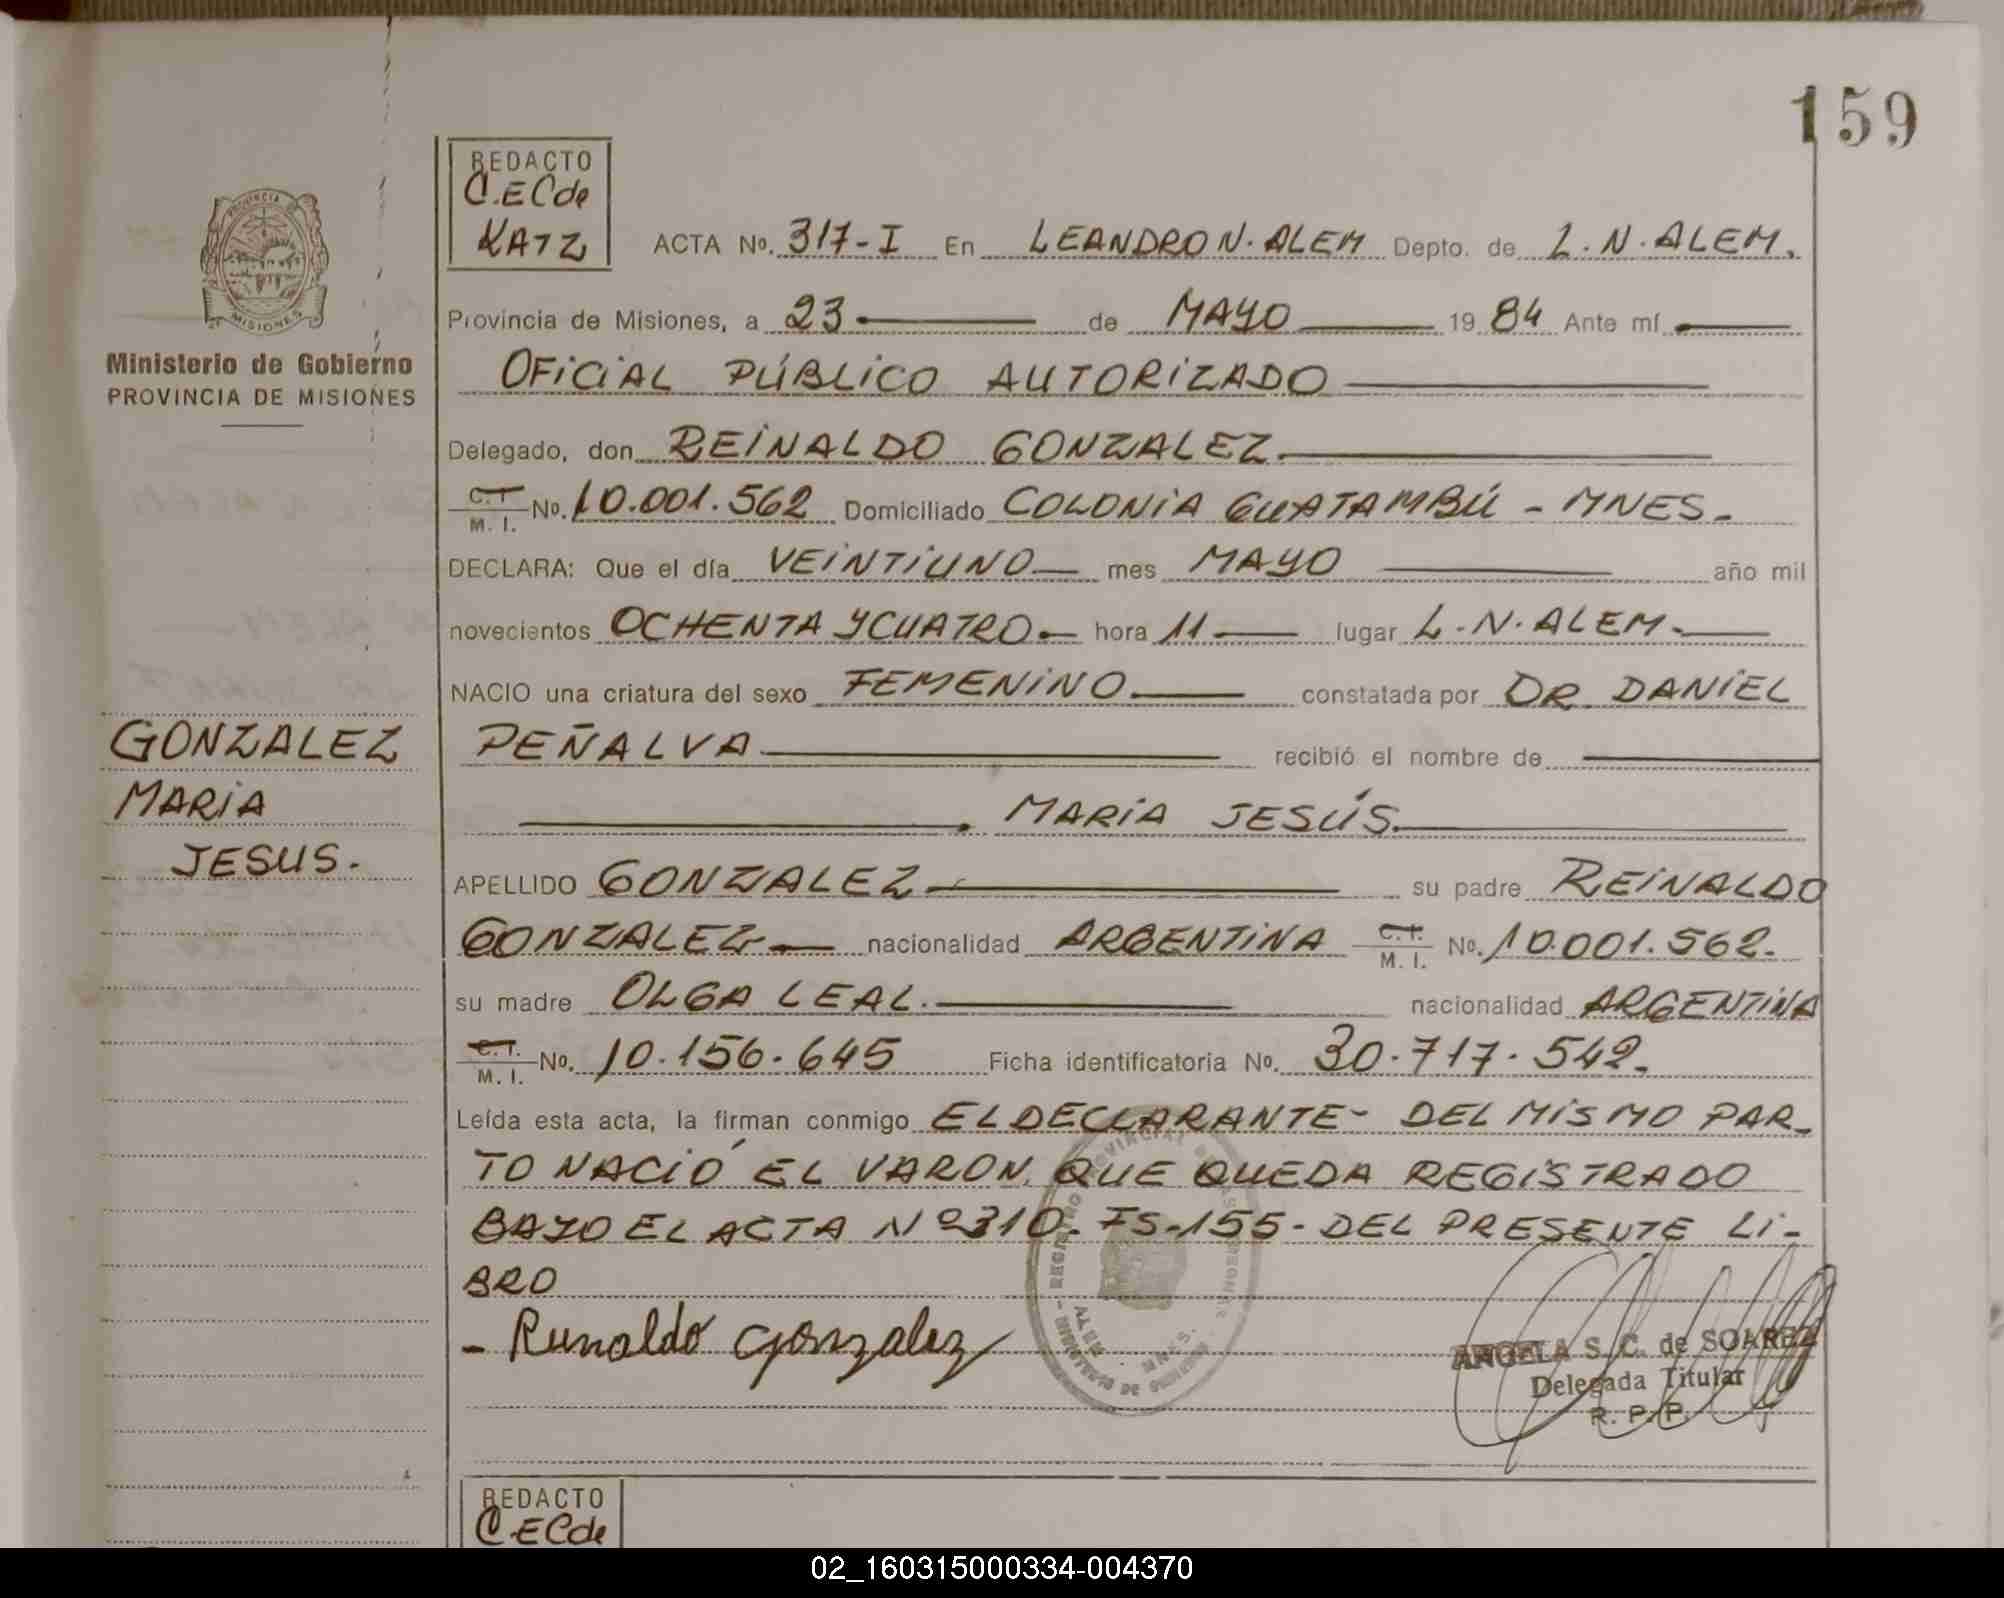 159
REDACTO
C.ECde
KATZ
ACTA No. 317-I En LEANDRO N. ALEM Depto. de L. N. ALEM.
PROVINCIA DE
MISIONES
Provincia de Misiones, a 23 de MAYO 1984 Ante mí
Ministerio de Gobierno
PROVINCIA DE MISIONES
OFICIAL PÚBLICO AUTORIZADO
Delegado, don REINALDO GONZALEZ.
C.I. M. I. No. 10.001.562 Domiciliado COLONIA GUATAMBÚ - MNES.
DECLARA: Que el día VEINTIUNO mes MAYO año mil
novecientos OCHENTA Y CUATRO hora 11 lugar L. N. ALEM.
NACIO una criatura del sexo FEMENINO. constatada por DR. DANIEL
GONZALEZ
MARIA
JESUS.
PEÑALVA recibió el nombre de
MARIA JESÚS.
APELLIDO GONZALEZ su padre REINALDO
GONZALEZ nacionalidad ARGENTINA C.I. M. I. No. 10.001.562.
su madre OLGA LEAL. nacionalidad ARGENTINA
C.I. M. I. No. 10.156.645 Ficha identificatoria No. 30.717.542.
Leída esta acta, la firman conmigo EL DECLARANTE - DEL MISMO PAR-
TO NACIÓ EL VARON, QUE QUEDA REGISTRADO
BAJO EL ACTA Nº 310. FS-155- DEL PRESENTE LI-
BRO
- Reinaldo Gonzalez
ANGELA S. C. de SOAREZ
Delegada Titular
R. P. P.
REDACTO
C.ECde
02_160315000334-004370